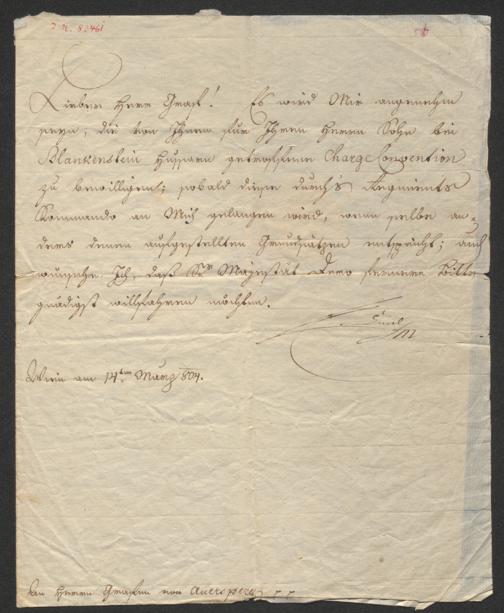 J. N. 83461
Lieber Herr Graf! Es wird Mir angenehm
seyn, die von Ihnen für Ihren Herrn Sohn bei
Blankenstein Husaren getroffene Charge Convention
zu bewilligen; sobald diese durch's Regiments
Kommando an Mich gelangen wird, wenn selbe an-
ders denen aufgestellten Grundsätzen entspricht; auch
wünsche Ich, daß Sr. Majestät Dero fernere Bitte
gnädigst willfahren möchten.
Carl
Wien am 14ten März 804.
An Herrn Grafen von Auersperg